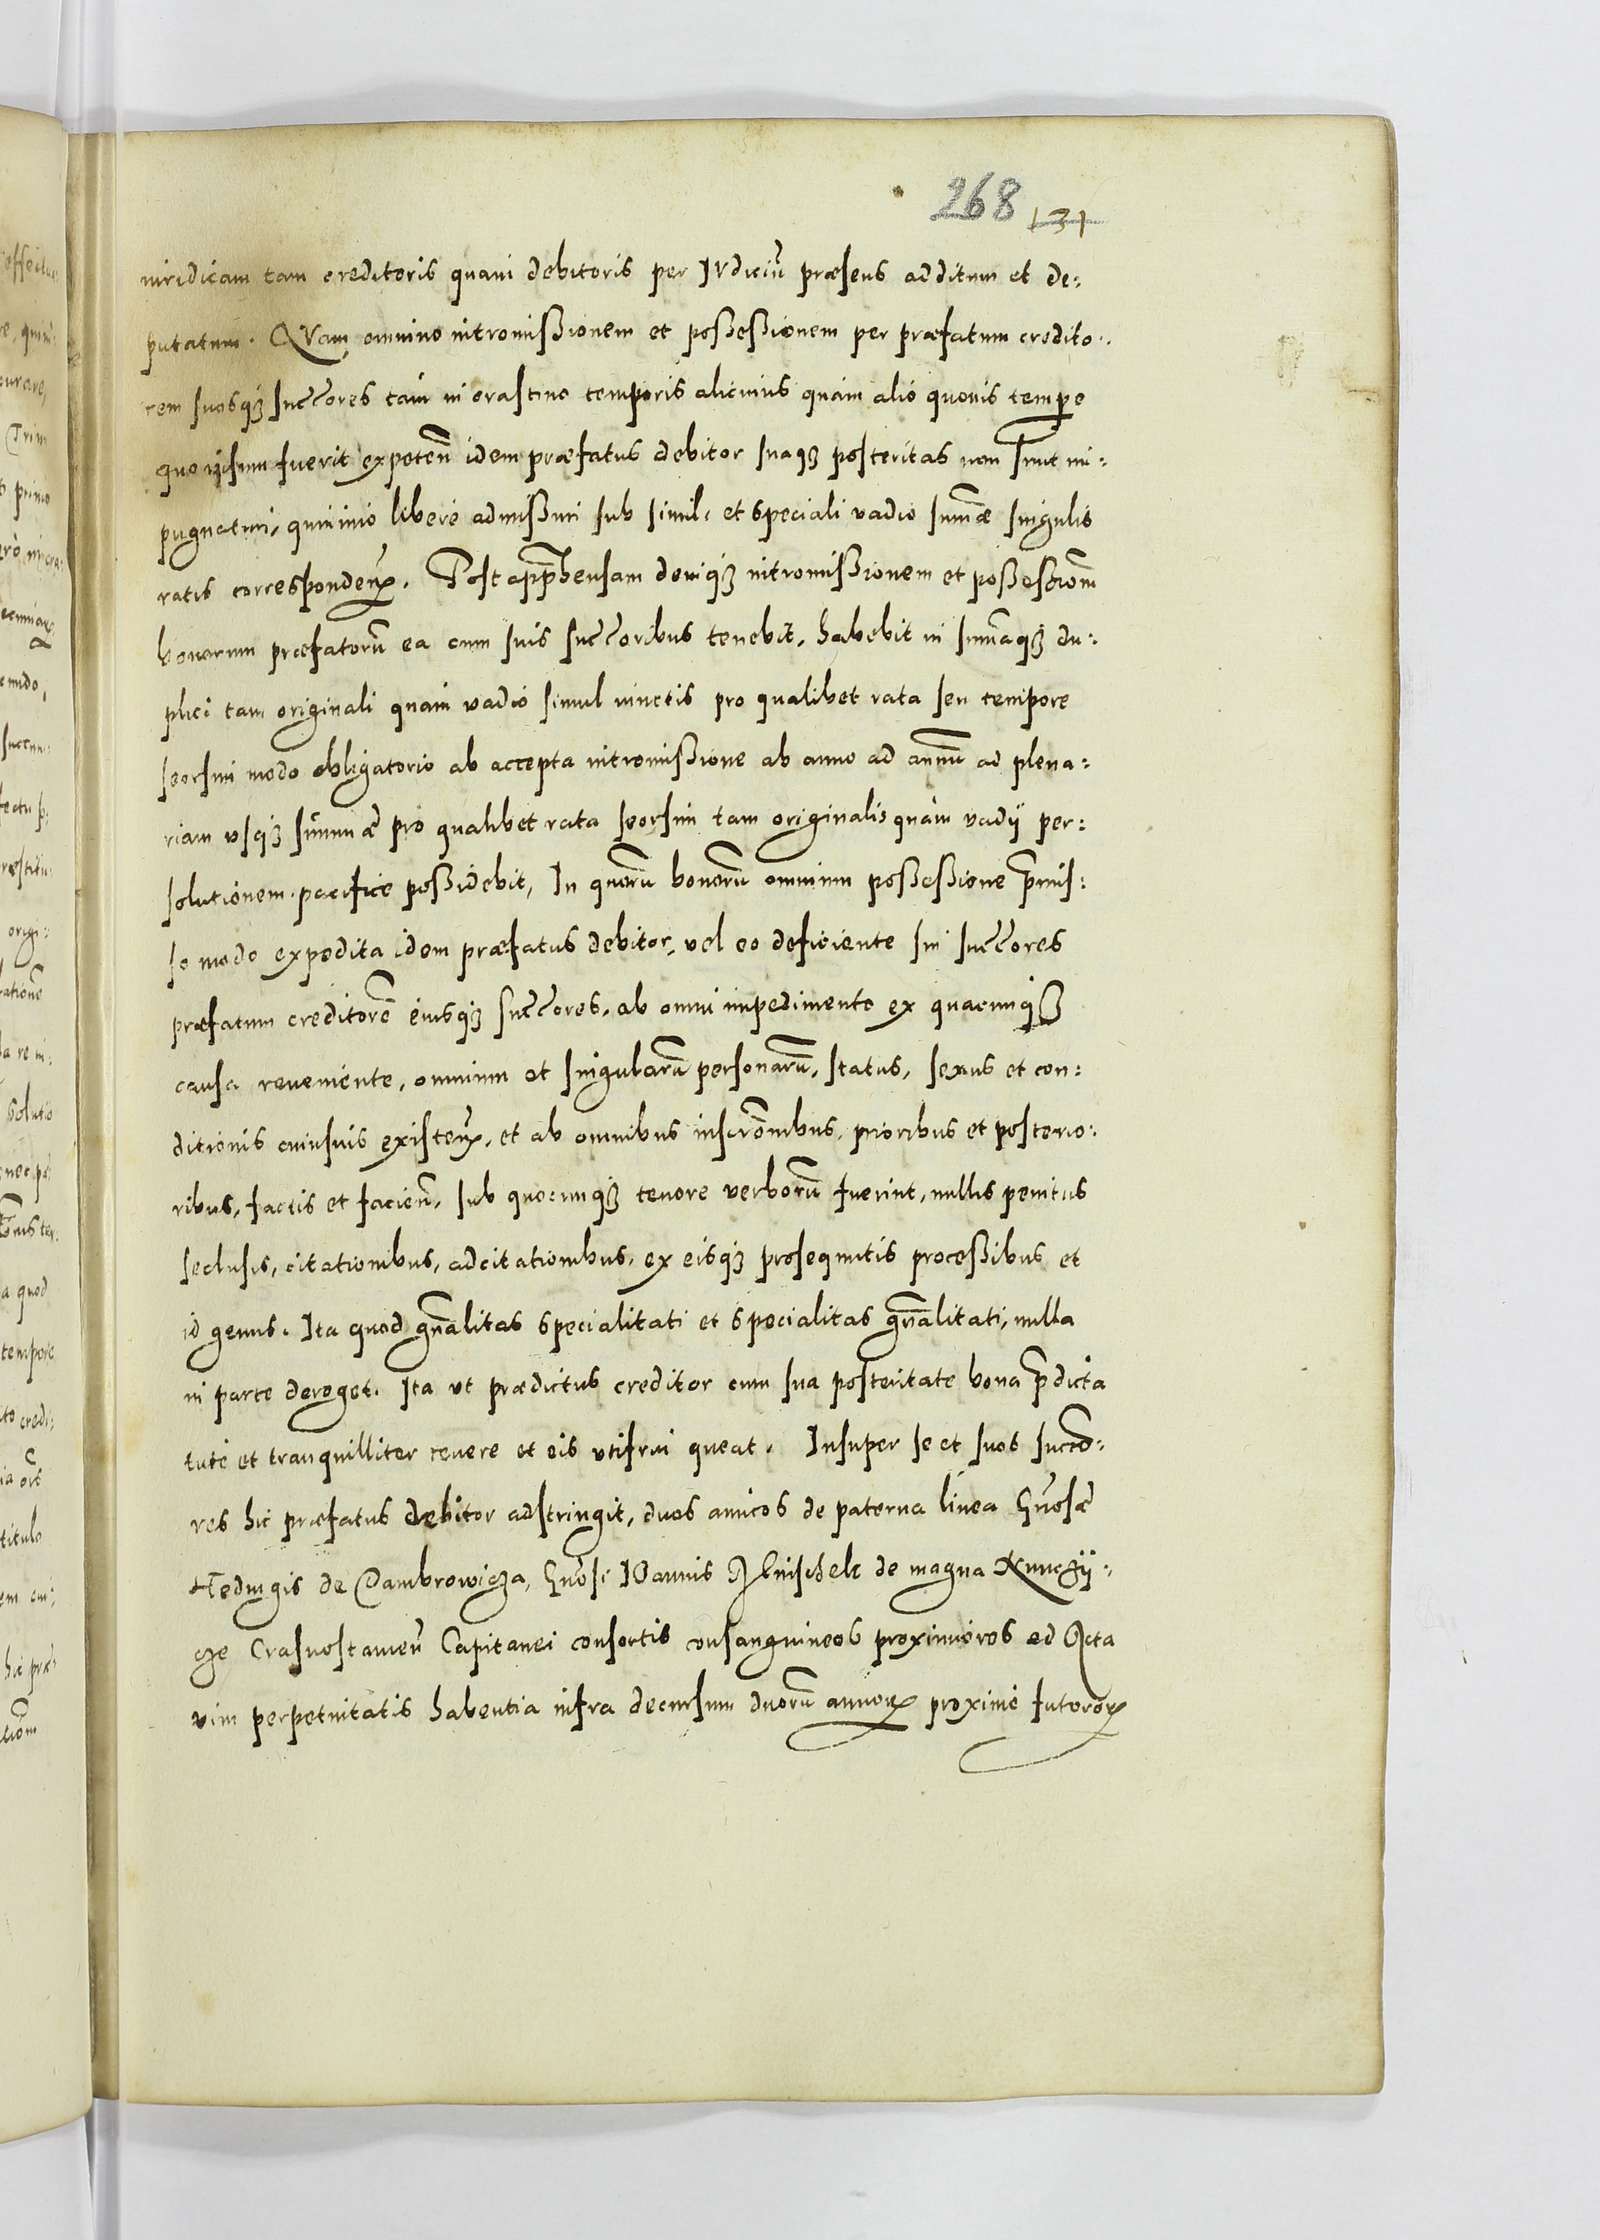 268 131
iuridicam tam creditoris quam debitoris per IVdiciũ præsens additum et de:
putatum. QVam omnino intromißionem et poßeßionem per præfatum credito:
rem suosq3 succ̃ores tam in crastino temporis alicuius quàm alio quouis tempe
quo visum fuerit expeteñ idem præfatus debitor suaq3 posteritas non sunt im:
pugnaturi, quinimo liberè admißuri sub simili et speciali vadio sum̃æ singulis
ratis correspondeñ. Post app̃hensam deniq3 intromißionem et poßeßiom̃
bonorum præfatorũ ea cum suis succ̃oribus tenebit, habebit in sum̃aq3 du:
plici tam originali quàm vadio simul iunctis pro qualibet rata seu tempore
seorsim modo obligatorio ab accepta intromißione ab anno ad annũ ad plena:
riam vsq3 sum̃æ pro qualibet rata seorsim tam originalis quàm vadij per:
solutionem pacificè poßidebit, In quorũ bonorũ omnium poßeßione p̃mis:
so modo expedita idem præfatus debitor, vel eo deficiente sui succ̃ores
præfatum creditorẽ eiusq3 succ̃ores, ab omni impedimento ex quacunq3
causa reueniente, omnium et singularũ personarũ, status, sexus et con:
ditionis cuiusuis existeñ, et ab omnibus inscrõnibus, prioribus et posterio:
ribus, factis et facieñ, sub quocunq3 tenore verborũ fuerint, nullis penitus
seclusis, citationibus, adcitationibus, ex eisq3 prosequutis proceßibus et
id genus. Ita quod gñalitas specialitati et specialitas gñalitati, nulla
in parte deroget. Ita vt prædictus creditor cum sua posteritate bona p̃dicta
tutè et tranquilliter tenere et eis vtifrui queat. Insuper se et suos succõ:
res hic præfatus debitor adstringit, duos amicos de paterna linea Gñosæ
Heduigis de Dambrowicza, Gñosi IOannis Mnischek de magna Kunczij:
cze Crasnostauieñ Capitanei consortis consanguineos proximiores ad Acta
vim perpetuitatis habentia infra decursum duorũ annorꝝ proximè futurorꝝ